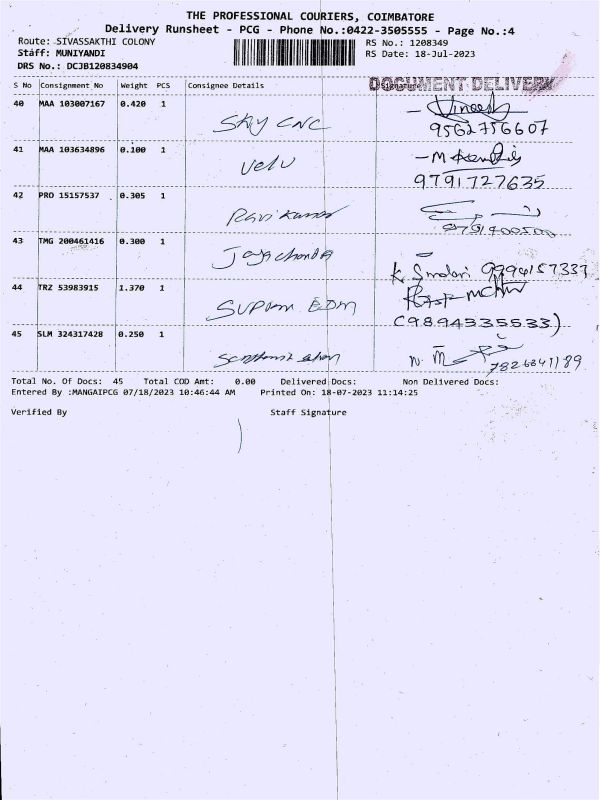 THE PROFESSIONAL COURIERS, COIMBATORE
Delivery Runsheet - PCG - Phone No.:0422-3505555 - Page No.:4
Route: SIVASSAKTHI COLONY RS No.: 1208349
Staff: MUNIYANDI RS Date: 18-Jul-2023
DRS No.: DCJB120834904
DOCUMENT DELIVERY
S No Consignment No Weight PCS Consignee Details
40 MAA 103007167 0.420 1 Sky CNC Vineesh
9562756607
41 MAA 103634896 0.100 1 Velu - M
9791727635
42 PRO 15157537 0.305 1 Ravi Kumar
43 TMG 200461416 0.300 1 Jaya chandra
K 9994157337
44 TRZ 53983915 1.370 1 SUPRM EDM
(9894335533)
45 SLM 324317428 0.250 1 N. M
Total No. Of Docs: 45 Total COD Amt: 0.00 Delivered Docs: Non Delivered Docs:
Entered By :MANGAIPCG 07/18/2023 10:46:44 AM Printed On: 18-07-2023 11:14:25
Verified By Staff Signature